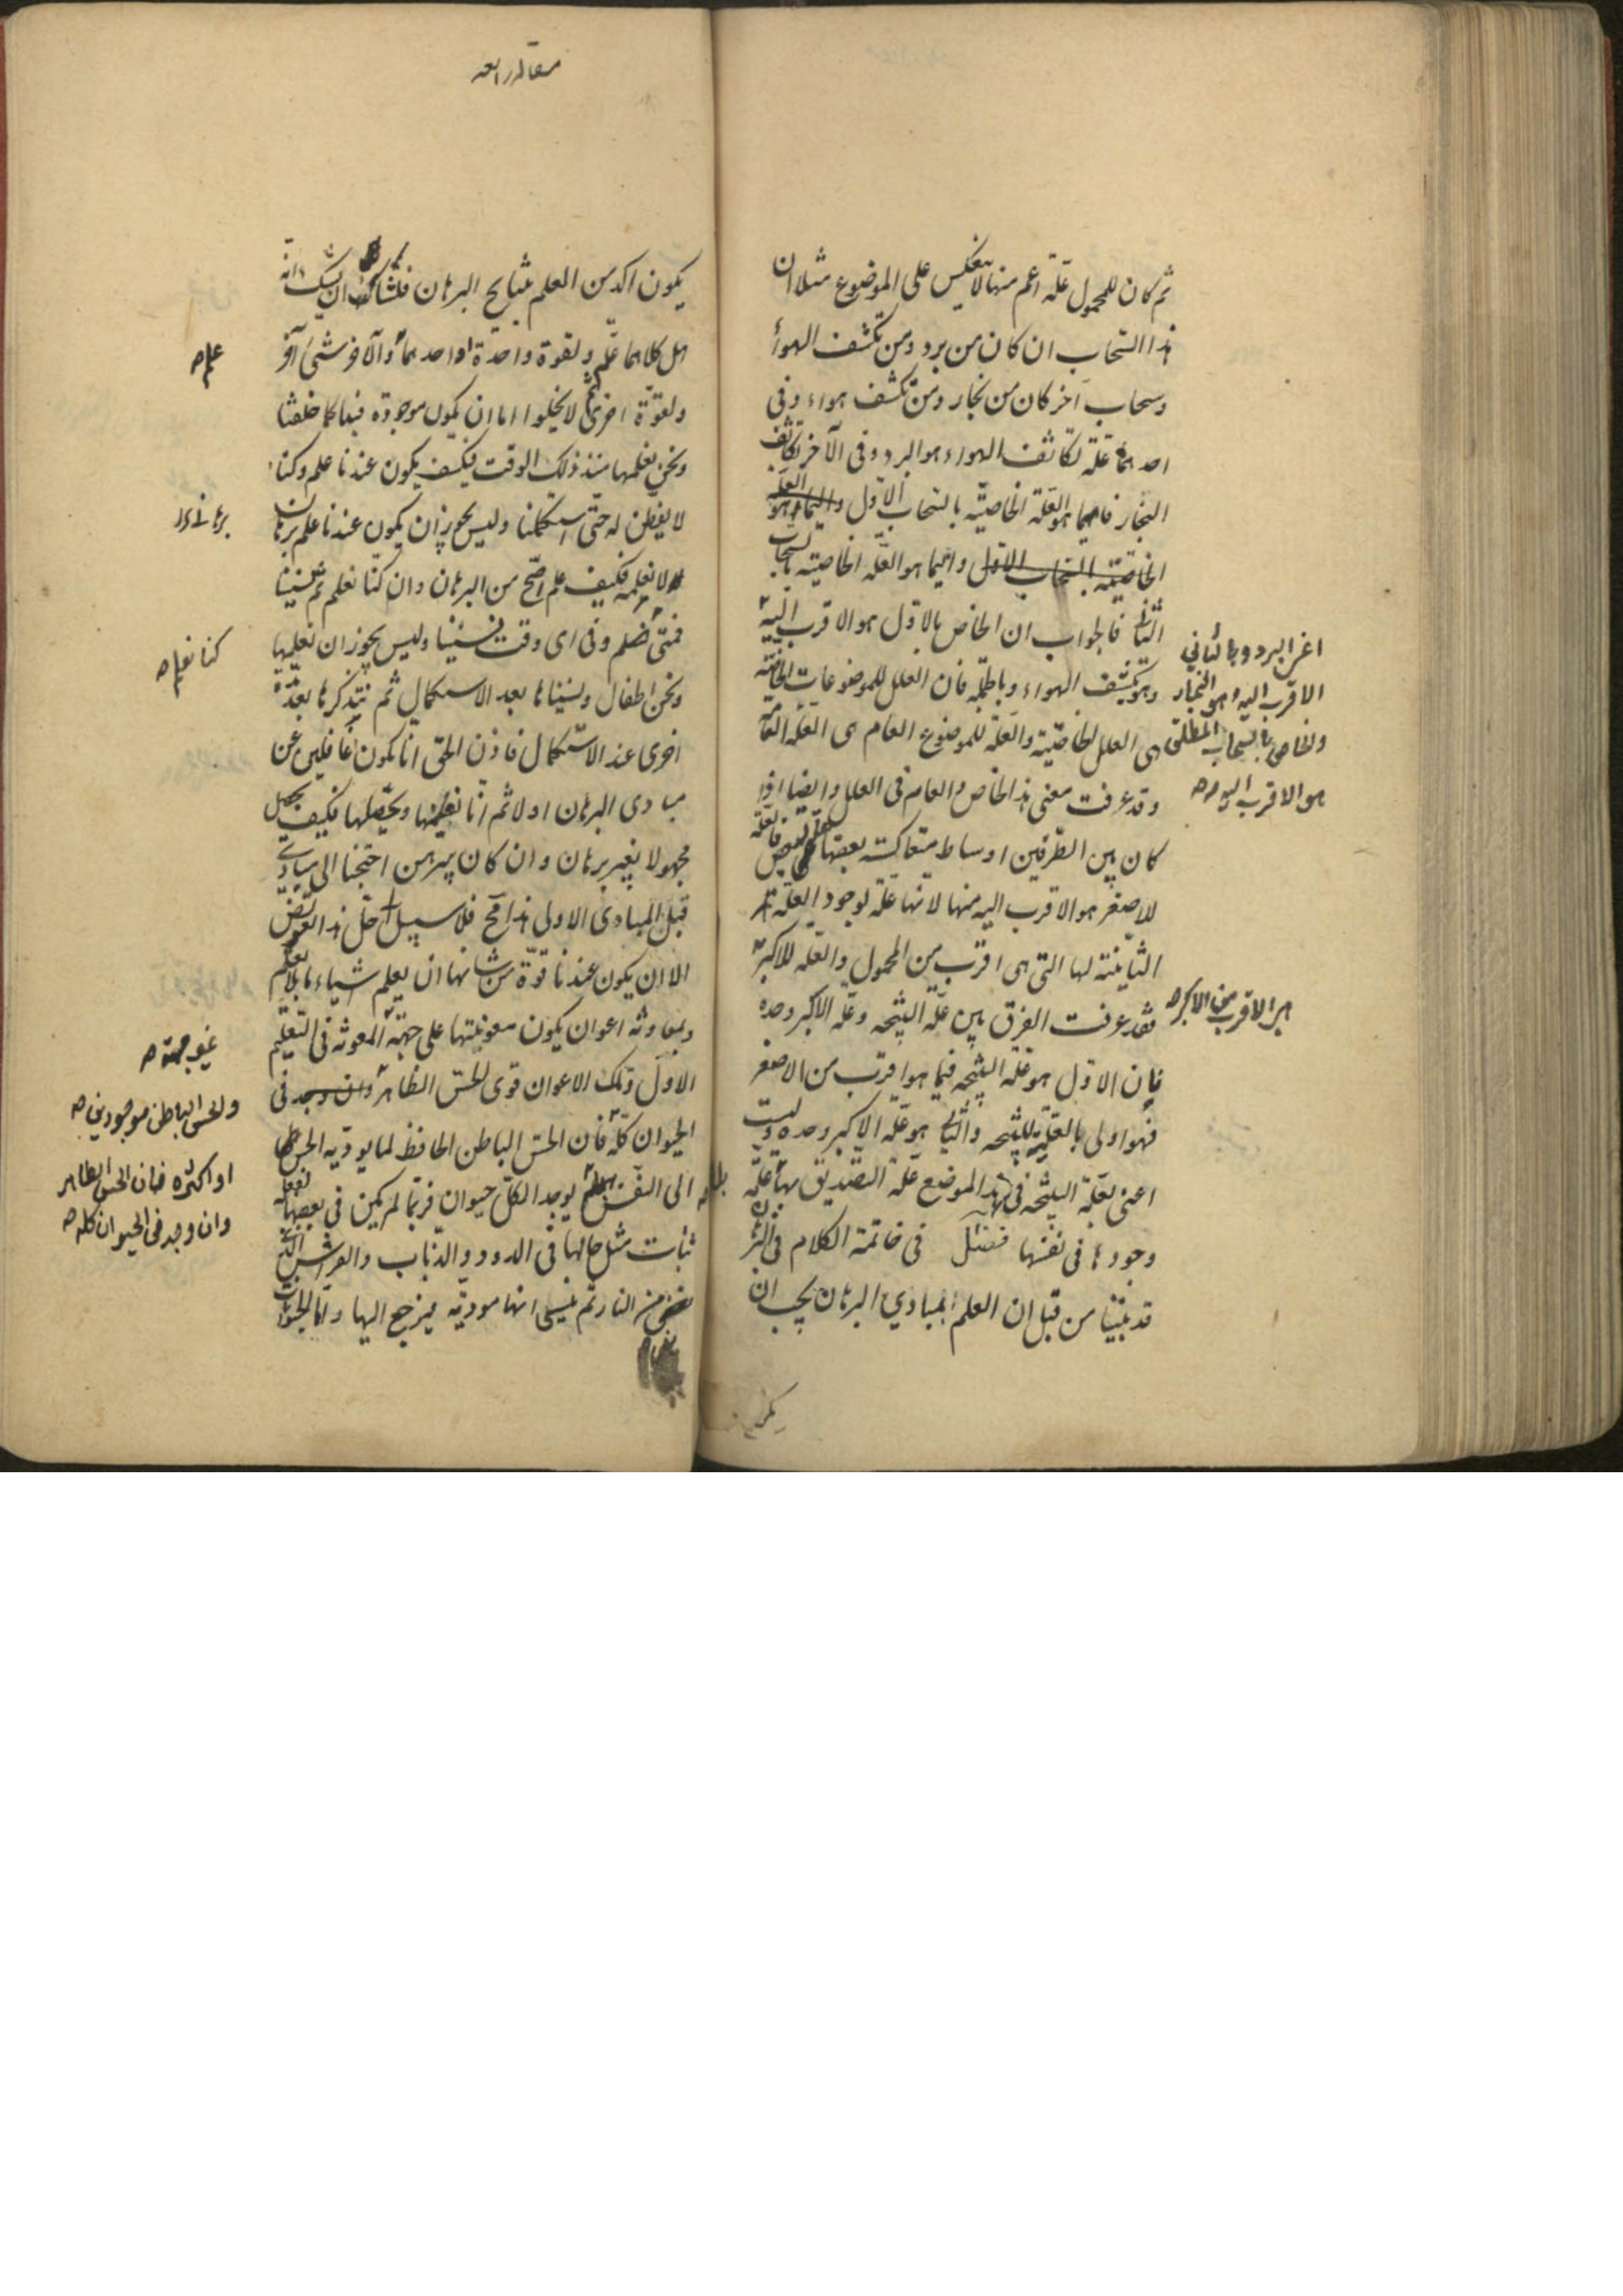 ثم كان للمحمول علة اعم منها لا ينعكس على الموضوع مثلا ان
هذا السحاب ان كان من برد ومن تكثف الهواء
وسحاب آخر كان من بخار ومن تكثف هواء وفى
احدهما علة تكاثف الهواء هو البرد وفى الآخر تكاثف
البخار فايهما هو العلة الخاصية بالسحاب الاول وايهما هو العلة
الخاصية بالسحاب الاول وايهما هو العلة الخاصية بالسحاب
الثانى فالجواب ان الخاص بالاول هو الاقرب اليه
وهو تكثف الهواء وبالجملة فان العلل للموضوعات الخاصة
هى العلل الخاصية والعلة للموضوع العام هى العلة العامة
وقد عرفت معنى هذا الخاص والعام فى العلل وايضا اذا
كان بين الطرفين اوساط متعاكسة بعضها على بعض فالعلة
للاصغر هو الاقرب اليه منها لانها علة لوجود العلة
الثانية لها التى هى اقرب من المحمول والعلة للاكبر
فقد عرفت الفرق بين علة النتيجه وعلة الاكبر وحده
فان الاول هو علة النتيجه فيما هو اقرب من الاصغر
فهو اولى بالعلية للنتيجه والثانى هو علة الاكبر وحده وليست
اعنى بعلة النتيجه فى هذا الموضع علة التصديق بها علة
وجودها فى نفسها فصل فى خاتمة الكلام فى البرهان
قد بينا من قبل ان العلم بمبادى البرهان يجب ان
اعنى البرد وبالثانى
الاقرب اليه هو البخار
والخاص بالسحاب المطلق
هو الاقرب اليه صح
هو الاقرب من الاكبر صح
مقاله رابعه
يكون اكد من العلم بنتايج البرهان فلشاك ان يشك انه
هل كلاهما علم ولقوة واحدة او احدهما والآخر شئ آخر
ولقوة اخرى ثم لا يخلوا اما ان يكون موجودة فينا كما خلقنا
ونحن نعلمها منذ ذلك الوقت فكيف يكون عندنا علم وكنا
لا نفطن له حتى استكملنا وليس يجوز ان يكون عندنا علم برهان
لا نعلمه فكيف علم اصح من البرهان وان كنا نعلم ثم نسينا
فمتى نعلم وفى اى وقت نسينا وليس يجوز ان نعلمها
ونحن اطفال ونسيناها بعد الاستكمال ثم نتذكرها بعد مدة
اخرى عند الاستكمال فاذن الحق انا نكون غافلين عن
مبادى البرهان اولا ثم انا نعلمها ونحصلها فكيف يحصل
مجهولا بغير برهان وان كان ببرهن احتجنا الى مبادى
قبل المبادى الاولى هذا مح فلا سبيل الى حل هذا العويص
الا ان يكون عندنا قوة من شانها ان يعلم اشياء ما بلا تعلم
وبمعاونة اعوان يكون معونيتها على جهة المعونة فى التعليم
الاول وتلك الاعوان قوى الحس الظاهر وان وجد فى
الحيوان كله فان الحس الباطن الحافظ لما يوديه الحس
الى النفس يوجد الكل حيوان فربما لم يكن فى بعضها
ثبات مثل حالها فى الدود والذباب والفراش الذى
من النار ثم ينسى انها موذية فيرجع اليها واما الحيوان
علم صح
برهانى
كنا نعلم صح
غير جهة صح
والحس الباطن موجودين صح
او اكثره فان الحس الظاهر
وان وجد فى الحيوان كله صح